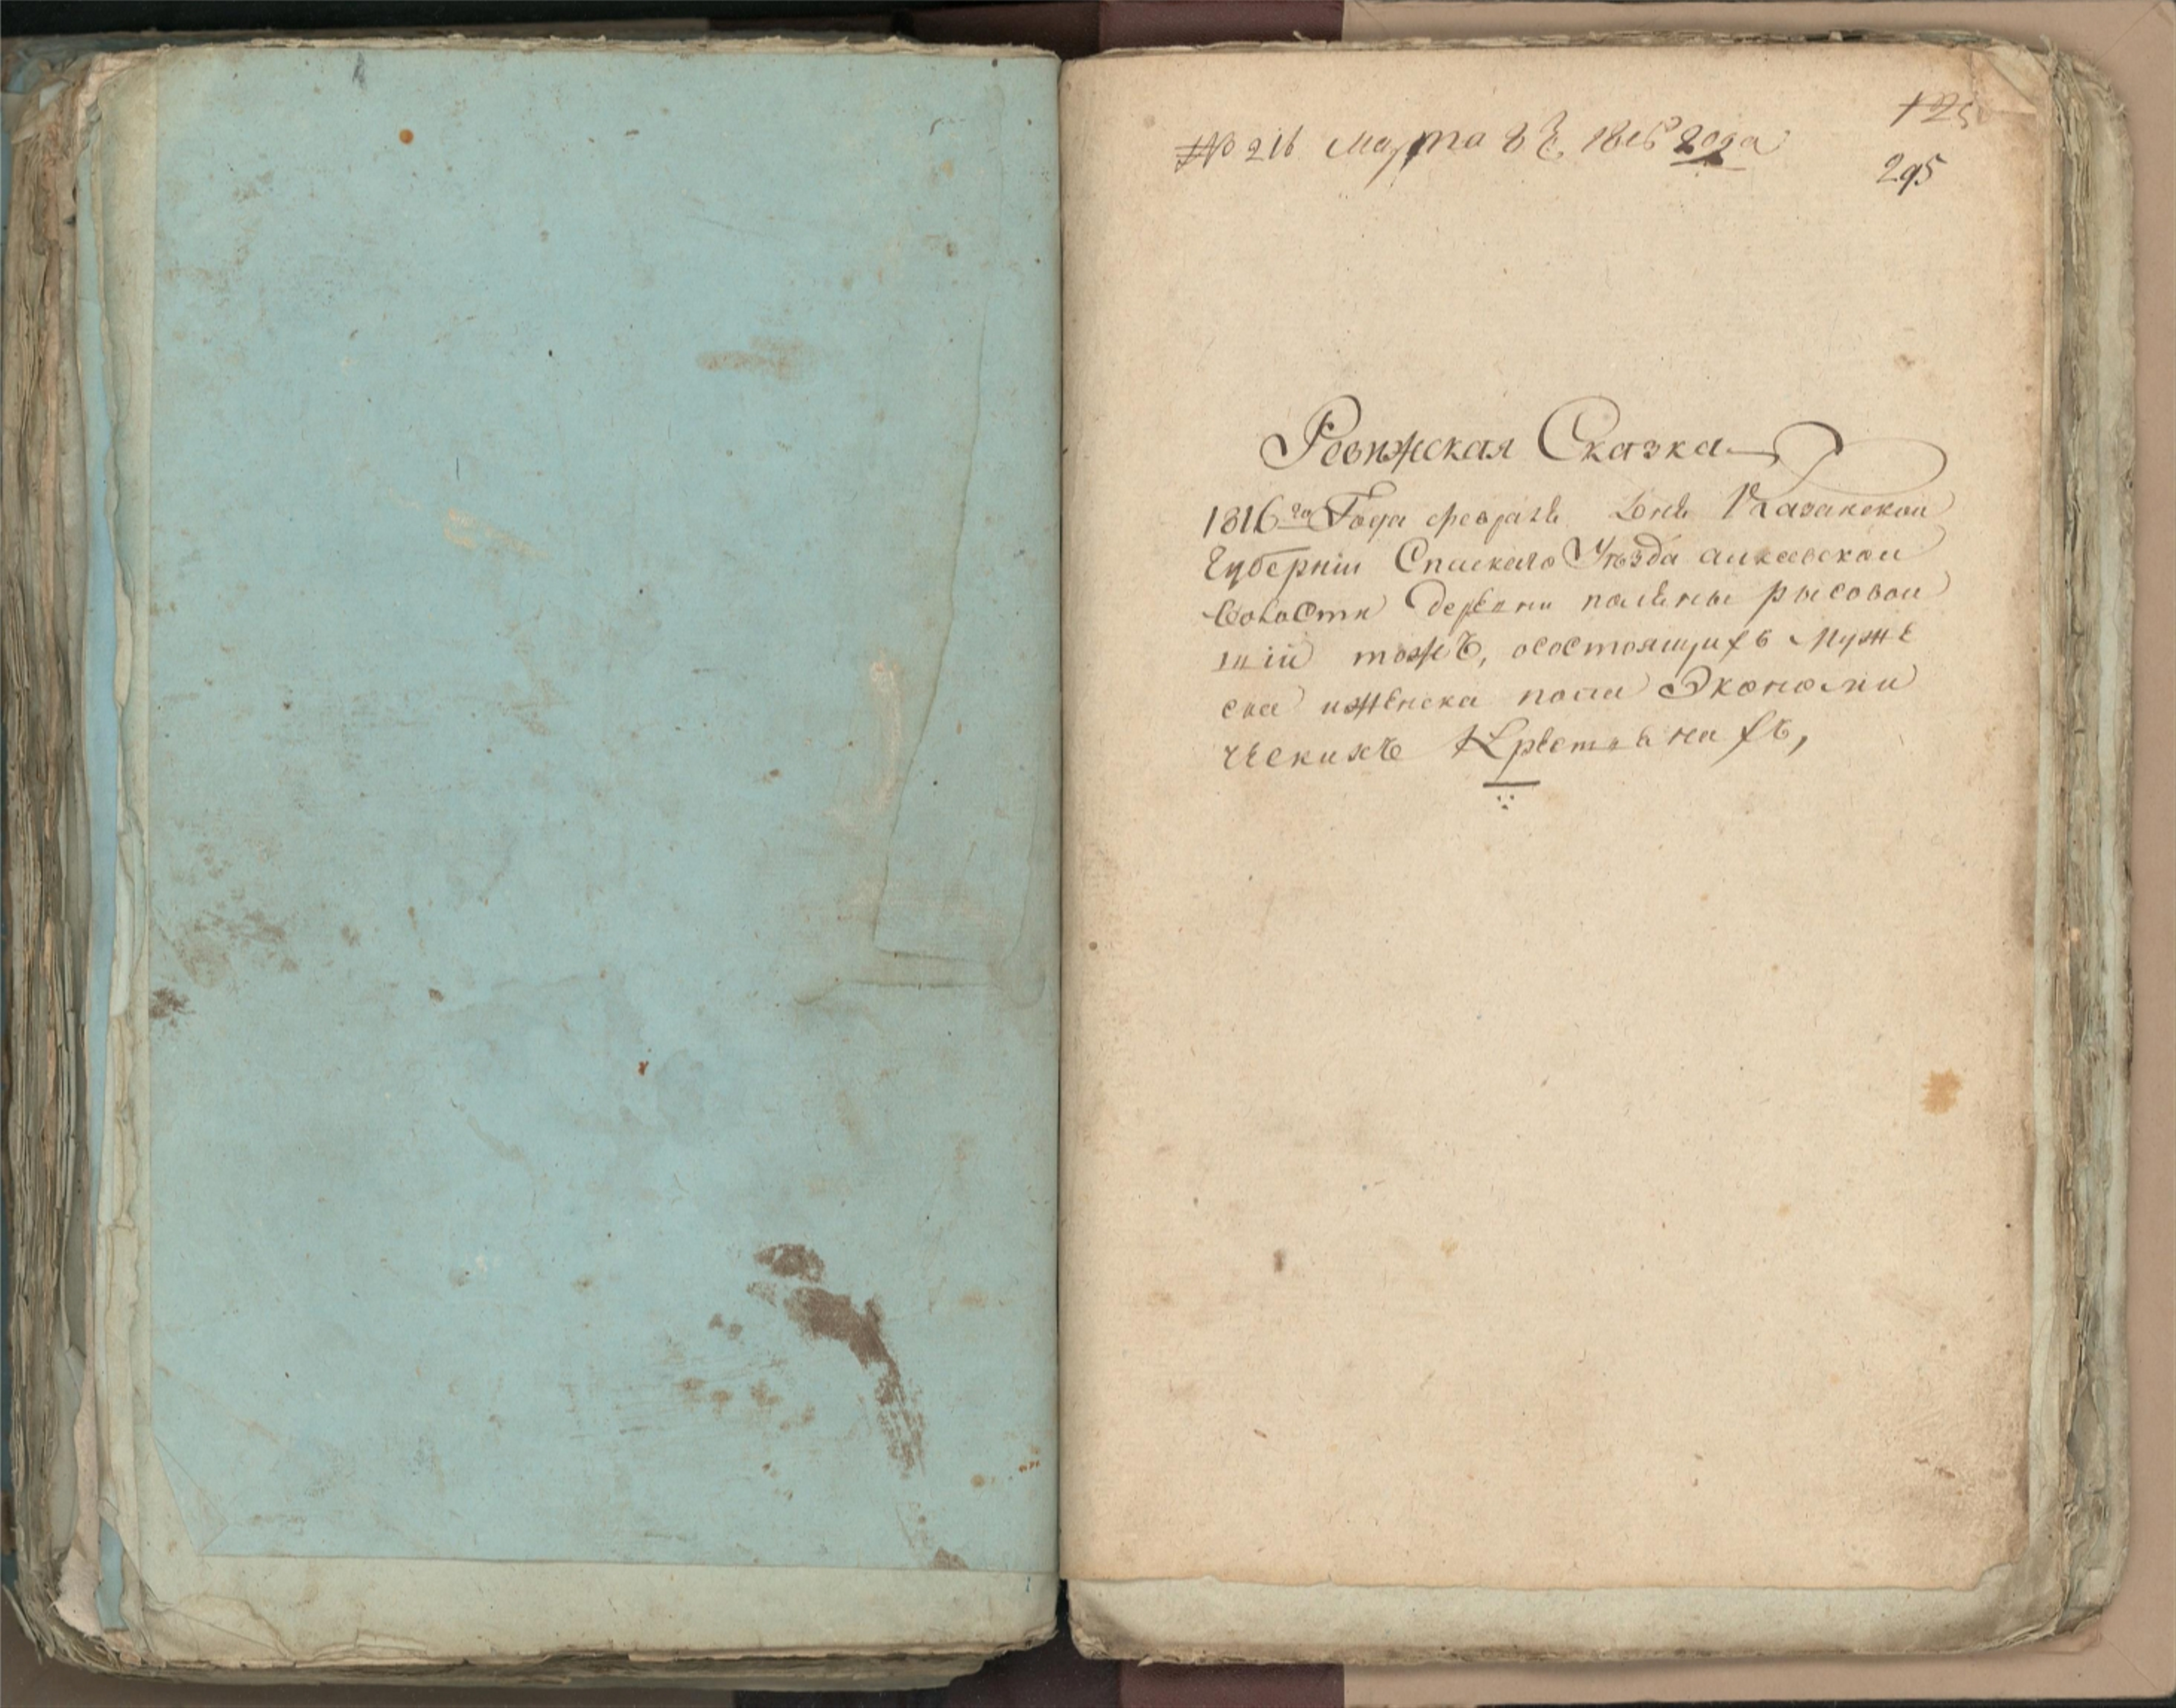 № 216 Марта 8 1816 года
125
295
Ревижская Сказка
1816го Года февраля дня Казанской
Губернии Спаскаго Уѣзда алкеевской
волости деревни поляны рысовой
тожъ, осостоящихъ мужե
ска иженска пола Экономи
ческихъ Крестьянахъ,